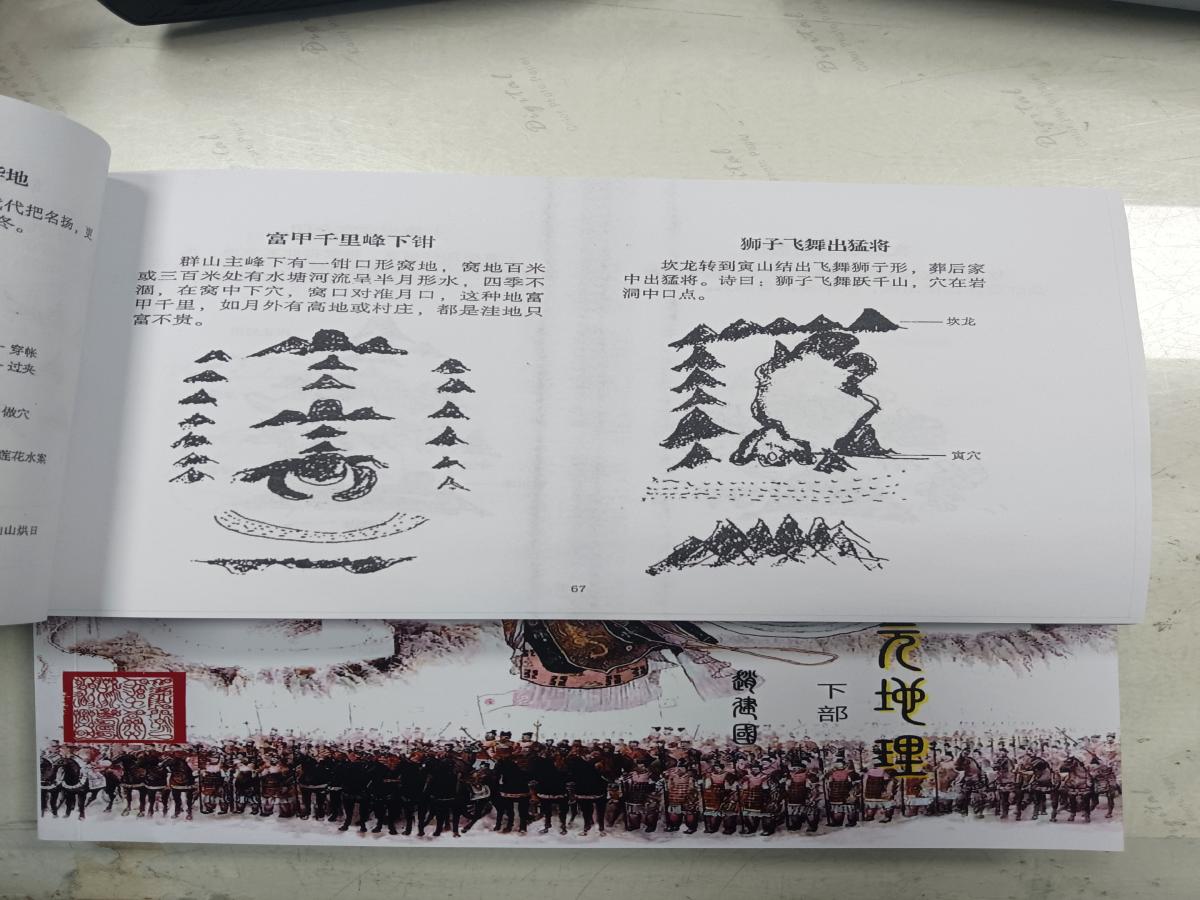 华地
代把名扬，更
冬。
穿帐
过夹
做穴
莲花水案
山烘日
富甲千里峰下钳
群山主峰下有一钳口形窝地，窝地百米
或三百米处有水塘河流呈半月形水，四季不
涸，在窝中下穴，窝口对准月口，这种地富
甲千里，如月外有高地或村庄，都是洼地只
富不贵。
狮子飞舞出猛将
坎龙转到寅山结出飞舞狮子形，葬后家
中出猛将。诗曰：狮子飞舞跃千山，穴在岩
洞中口点。
坎龙
寅穴
67
元地理
下部
赵建國
Digital
Digital
Digital
Digital
Digital